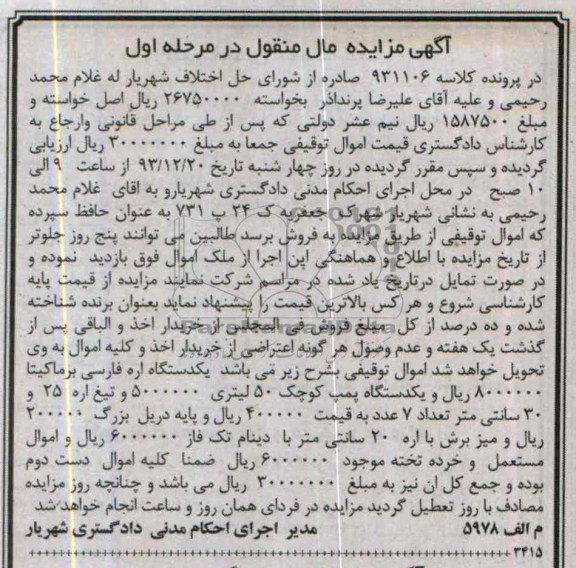 آگهی مزایده مال منقول در مرحله اول
در پرونده کلاسه ۹۳۱۱۰۶ صادره از شورای حل اختلاف شهریار له غلام محمد
رحیمی و علیه آقای علیرضا پرنداذر بخواسته ۲۶۷۵۰۰۰۰ ریال اصل خواسته و
مبلغ ۱۵۸۷۵۰۰ ریال نیم عشر دولتی که پس از طی مراحل قانونی وارجاع به
کارشناس دادگستری قیمت اموال توقیفی جمعا به مبلغ ۳۰۰۰۰۰۰۰ ریال ارزیابی
گردیده و سپس مقرر گردیده در روز چهار شنبه تاریخ ۹۳/۱۲/۲۰ از ساعت ۹ الی
۱۰ صبح در محل اجرای احکام مدنی دادگستری شهریارو به اقای غلام محمد
رحیمی به نشانی شهریار شهرک جعفریه ک ۲۴ پ ۷۳۱ به عنوان حافظ سپرده
که اموال توقیفی از طریق مزایده به فروش برسد طالبین می توانند پنج روز جلوتر
از تاریخ مزایده با اطلاع و هماهنگی این اجرا از ملک اموال فوق بازدید نموده و
در صورت تمایل درتاریخ یاد شده در مراسم شرکت نمایند مزایده از قیمت پایه
کارشناسی شروع و هر کس بالاترین قیمت را پیشنهاد نماید بعنوان برنده شناخته
شده و ده درصد از کل مبلغ فروش فی المجلس از خریدار اخذ و الباقی پس از
گذشت یک هفته و عدم وصول هر گونه اعتراضی از خریدار اخذ و کلیه اموال به وی
تحویل خواهد شد اموال توقیفی بشرح زیر می باشد یکدستگاه اره فارسی برماکیتا
۸۰۰۰۰۰۰ ریال و یکدستگاه پمپ کوچک ۵۰ لیتری ۵۰۰۰۰۰۰ و تیغ اره ۲۵ و
۳۰ سانتی متر تعداد ۷ عدد به قیمت ۴۰۰۰۰۰ ریال و پایه دریل بزرگ ۲۰۰۰۰۰۰
ریال و میز برش با اره ۲۰ سانتی متر با دینام تک فاز ۶۰۰۰۰۰۰ ریال و اموال
مستعمل و خرده تخته موجود ۶۰۰۰۰۰۰ ریال ضمنا کلیه اموال دست دوم
بوده و جمع کل ان نیز به مبلغ ۳۰۰۰۰۰۰۰ ریال می باشد و چنانچه روز مزایده
مصادف با روز تعطیل گردید مزایده در فردای همان روز و ساعت انجام خواهد شد
م الف ۵۹۷۸ مدیر اجرای احکام مدنی دادگستری شهریار
۳۴۱۵